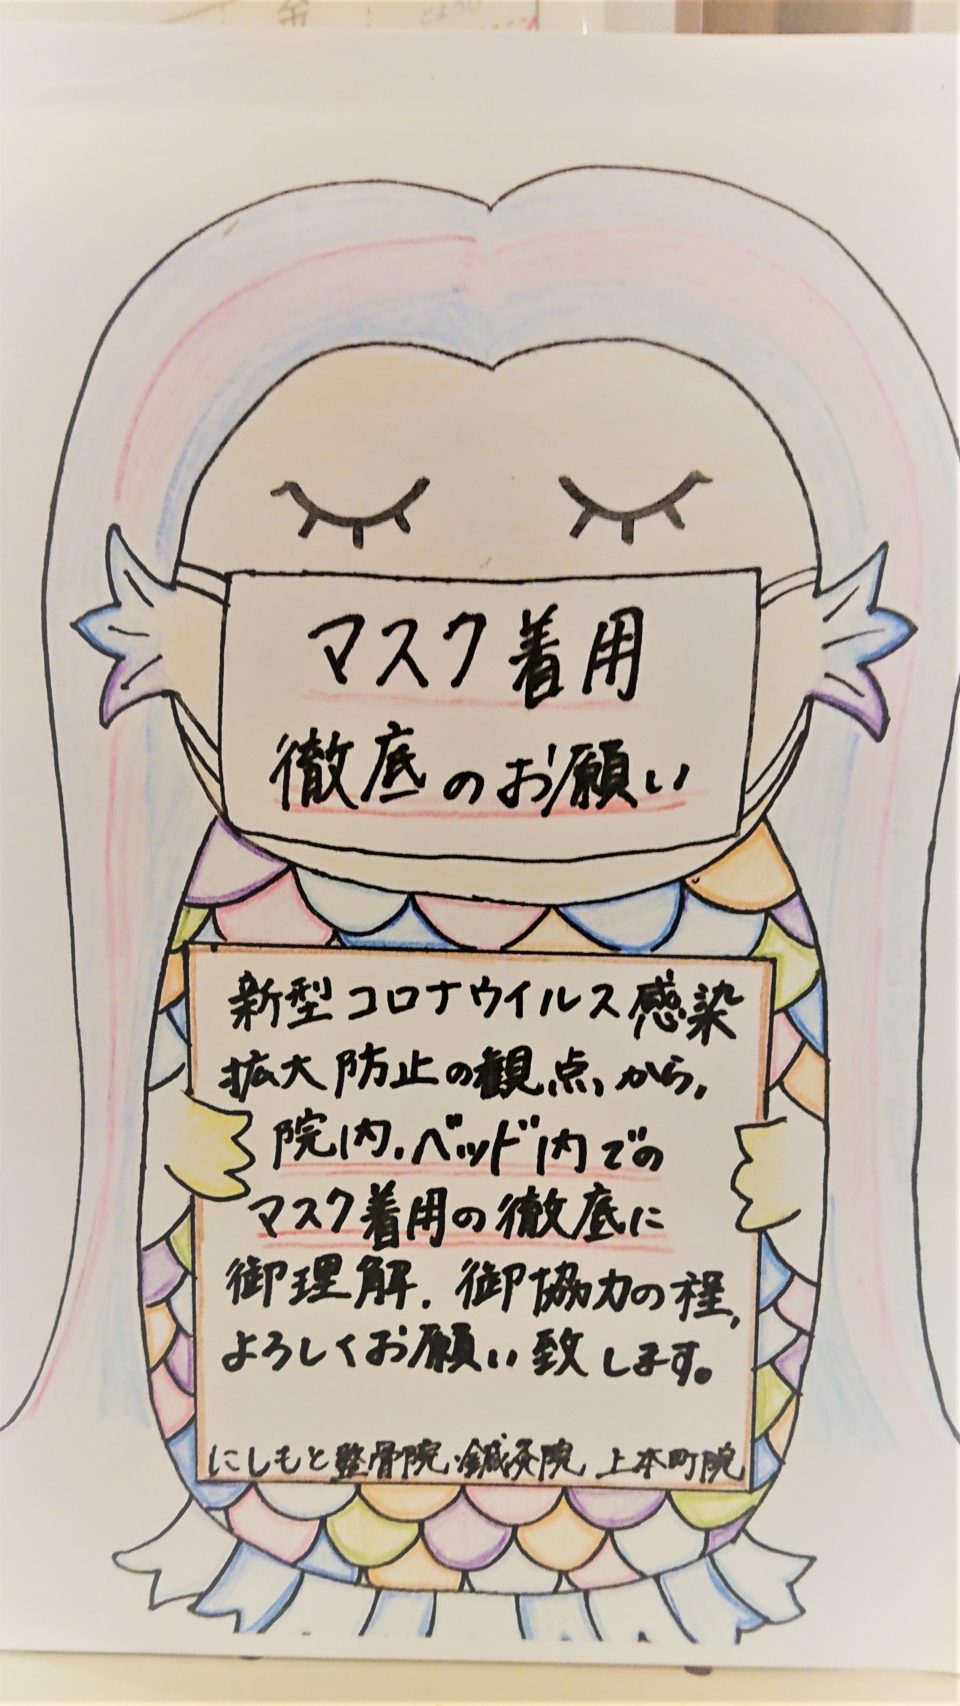 マスク着用
徹底のお願い
新型コロナウイルス感染
拡大防止の観点から、
院内、ベッド内での
マスク着用の徹底に
御理解、御協力の程、
よろしくお願い致します。
にしもと整骨院・鍼灸院 上本町院